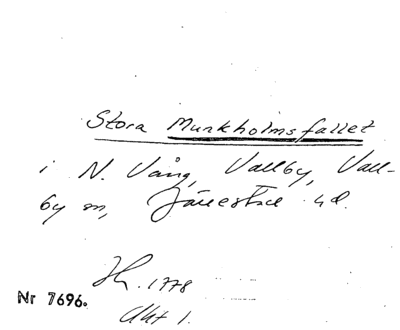 Stora Munkholmsfallet
i N. Vång, Vallby, Vall-
by sn, Järrestad hd.
1778
Nr 7696.
Akt 1.